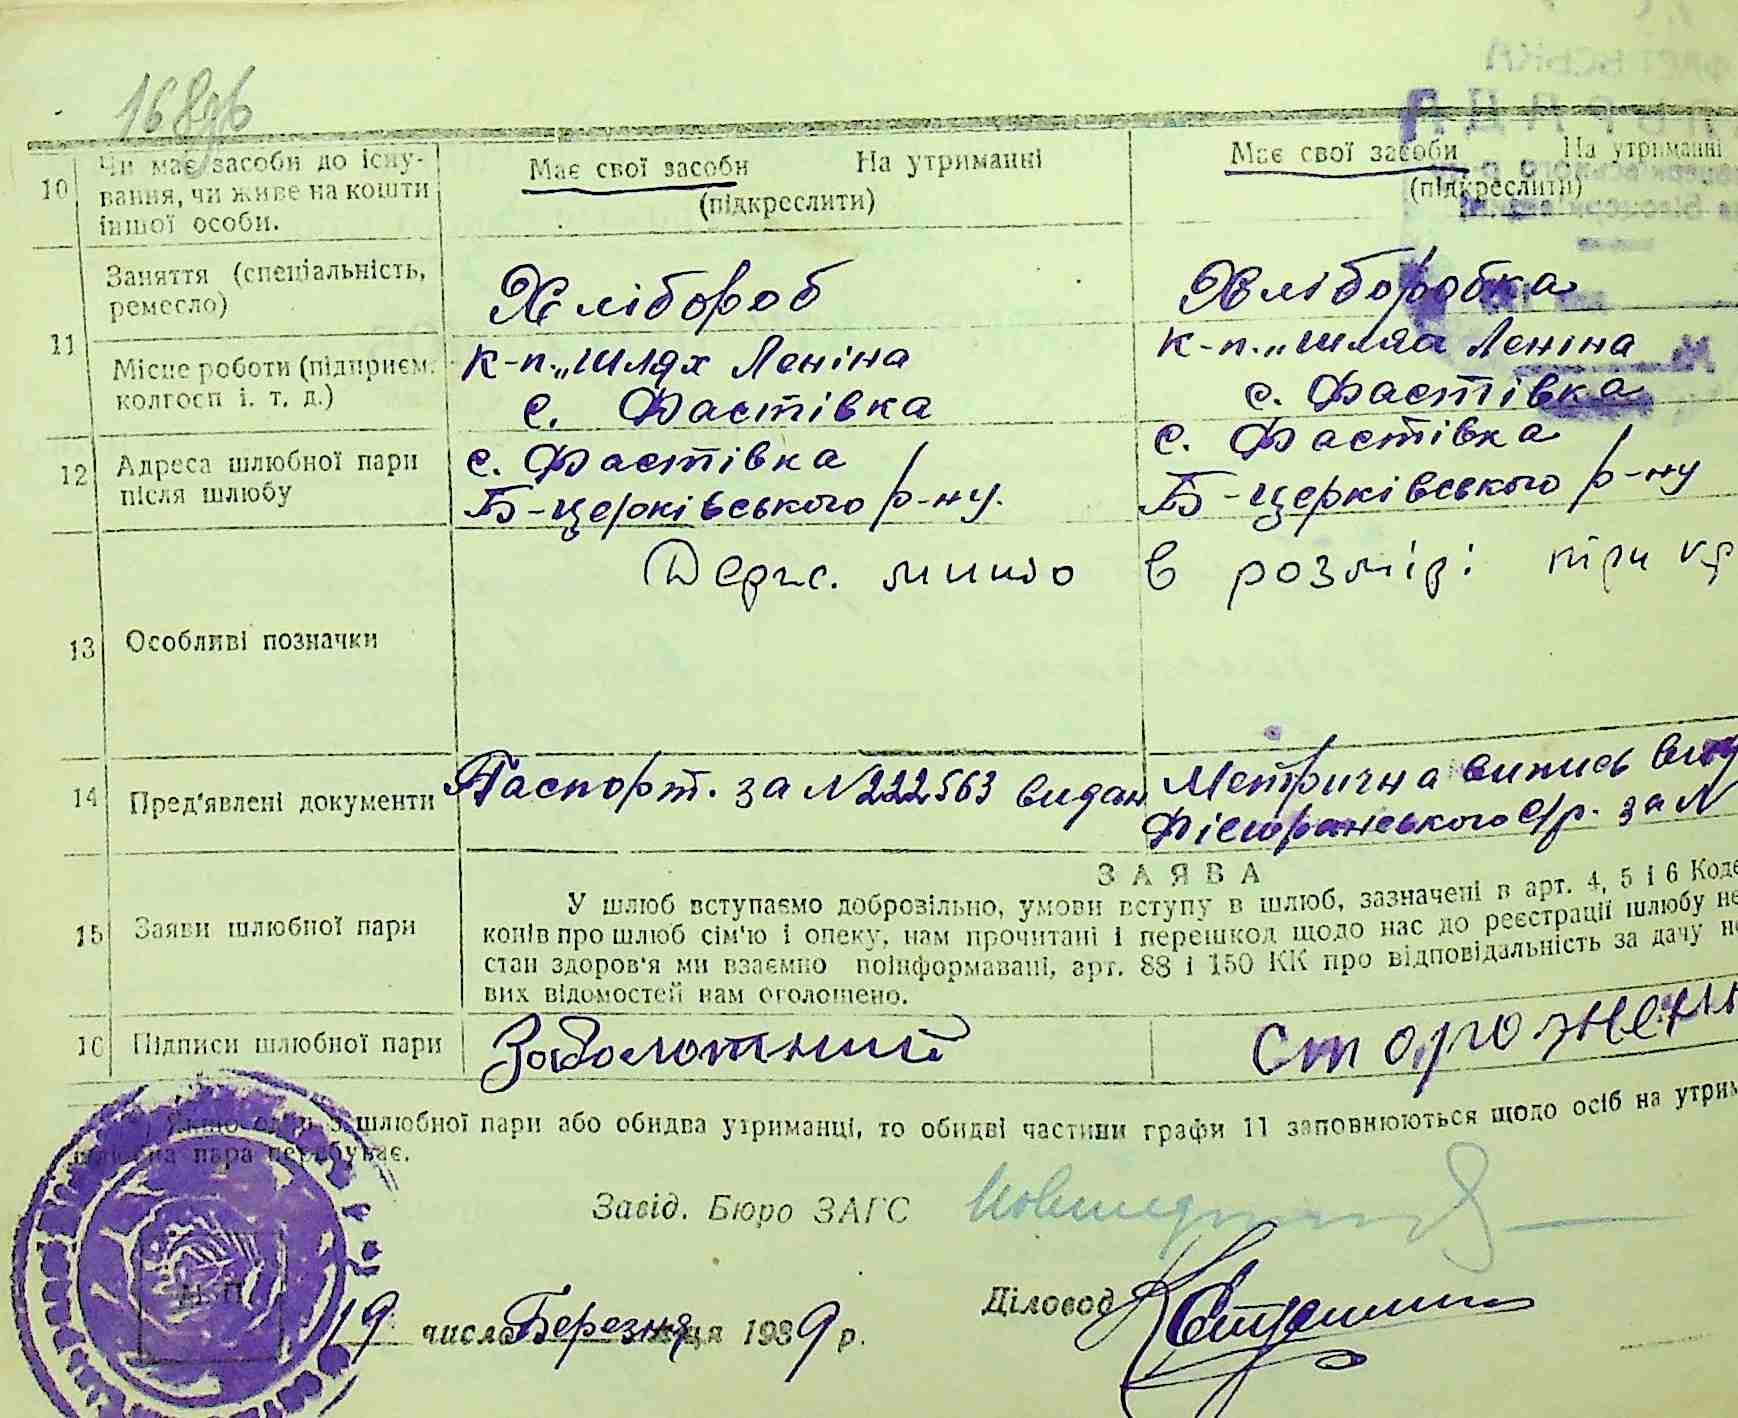 168
10 Чи має засоби до існу-
вання, чи живе на кошти
іншої особи.
Має свої засоби На утриманні
(підкреслити)
Має свої засоби На утриманні
(підкреслити)
11 Заняття (спеціальність,
ремесло)
Хлібороб
Хліборобка
Місце роботи (підприєм.
колгосп і. т. д.)
к-п. „Шлях Леніна
с. Фастівка
к-п. „Шлях Леніна
с. Фастівка
12 Адреса шлюбної пари
після шлюбу
с. Фастівка
Б-церківського р-ну.
с. Фастівка
Б-церківського р-ну
13 Особливі позначки
Держ. мито в розмірі три
14 Пред'явлені документи
Паспорт. за N 222563 видан
Метрична випись
за N
15 Заяви шлюбної пари
ЗАЯВА
У шлюб вступаємо добровільно, умови вступу в шлюб, зазначені в арт. 4, 5 і 6 Коде
конів про шлюб сім'ю і опеку, нам прочитані і перешкод щодо нас до реєстрації шлюбу не
стан здоров'я ми взаємно поінформавані, арт. 88 і 150 КК про відповідальність за дачу не
вих відомостей нам оголошено.
16 Підписи шлюбної пари
Заболотний
Стороженк
Якщо один з шлюбної пари або обидва утриманці, то обидві частини графи 11 заповнюються щодо осіб на утрим
шлюбна пара перебуває.
Завід. Бюро ЗАГС
М. П.
19 числа Березня м-ця 1939 р.
Діловод